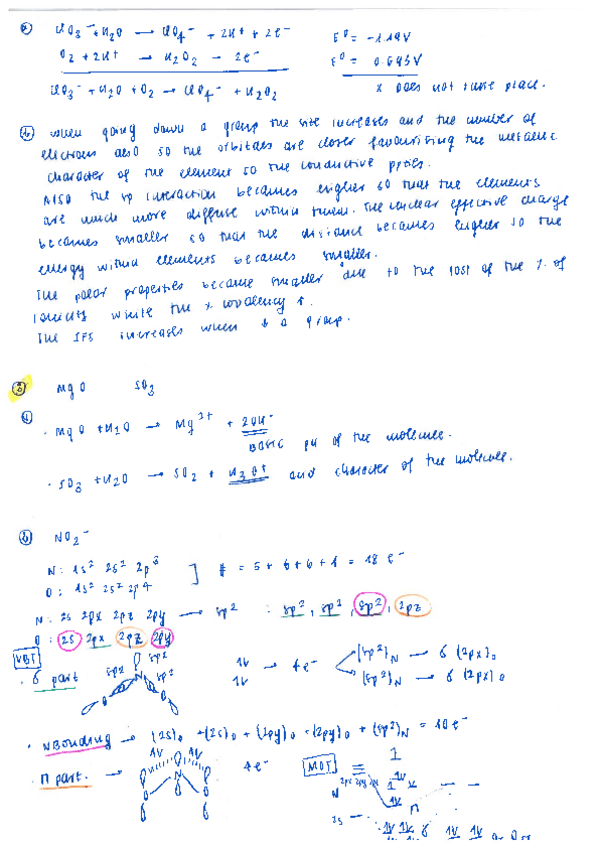 ClO3⁻ + H2O → ClO4⁻ + 2H⁺ + 2e⁻ E° = -1.19V
O2 + 2H⁺ → H2O2 - 2e⁻ E° = 0.695V
ClO3⁻ + H2O + O2 → ClO4⁻ + H2O2 x Does not take place.
When going down a group the size increases and the number of
electrons also so the orbitals are closer favourising the metallic
character of the element so the conductive pties.
Also the sp interaction becomes higher so that the elements
are much more diffuse within them. The nuclear effective charge
becomes smaller so that the distance becomes higher so the
energy within elements becomes smaller.
The polar properties became smaller due to the lost of the % of
ionicity while the % covalency ↑.
The IPS increases when ↓ a group.
③ MgO SO3
. MgO + H2O → Mg²⁺ + 2OH⁻
BASIC pH of the molecule.
. SO3 + H2O → SO2 + H3O⁺ acid character of the molecule.
b) NO2⁻
N: 1s² 2s² 2p³
O: 1s² 2s² 2p⁴ ] # = 5 + 6 + 6 + 1 = 18 e⁻
N: 2s 2px 2pz 2py → sp² : sp², sp², sp², 2pz
O: 2s 2px 2pz 2py
VBT
. σ part sp2 sp2 sp2 N O O 1v 1v → 4e⁻ (sp²)N → σ (2px)O
(sp²)N → σ (2px)O
. NBonding → (2s)O + (2s)O + (2py)O + (2py)O + (sp²)N = 10e⁻
. Π part. → 1v 1v O N O 4e⁻ MOT
N 2px 2py 2pz
2s